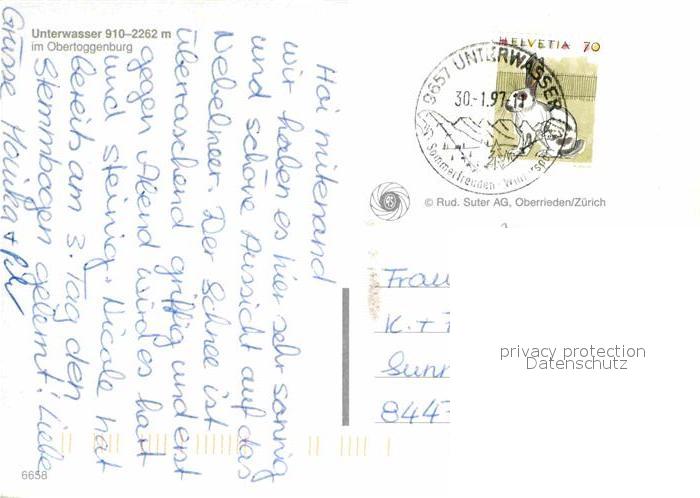 Unterwasser 910–2262 m
im Obertoggenburg
Hoi mitenand
wir haben es hier sehr sonnig
und schöne Aussicht auf das
Nebelmeer. Der Schnee ist
überraschend griffig und erst
gegen Abend wird es hart
und steinig. Nicole hat
bereits am 3. Tag den
Stemmbogen gelernt! Liebe
Grüsse Monika +
6658
HELVETIA 70
9657 UNTERWASSER
30.-1.97-17
Sommerfreuden - Wintersport
© Rud. Suter AG, Oberrieden/Zürich
Frau
K. +
Sunn
844
privacy protection
Datenschutz